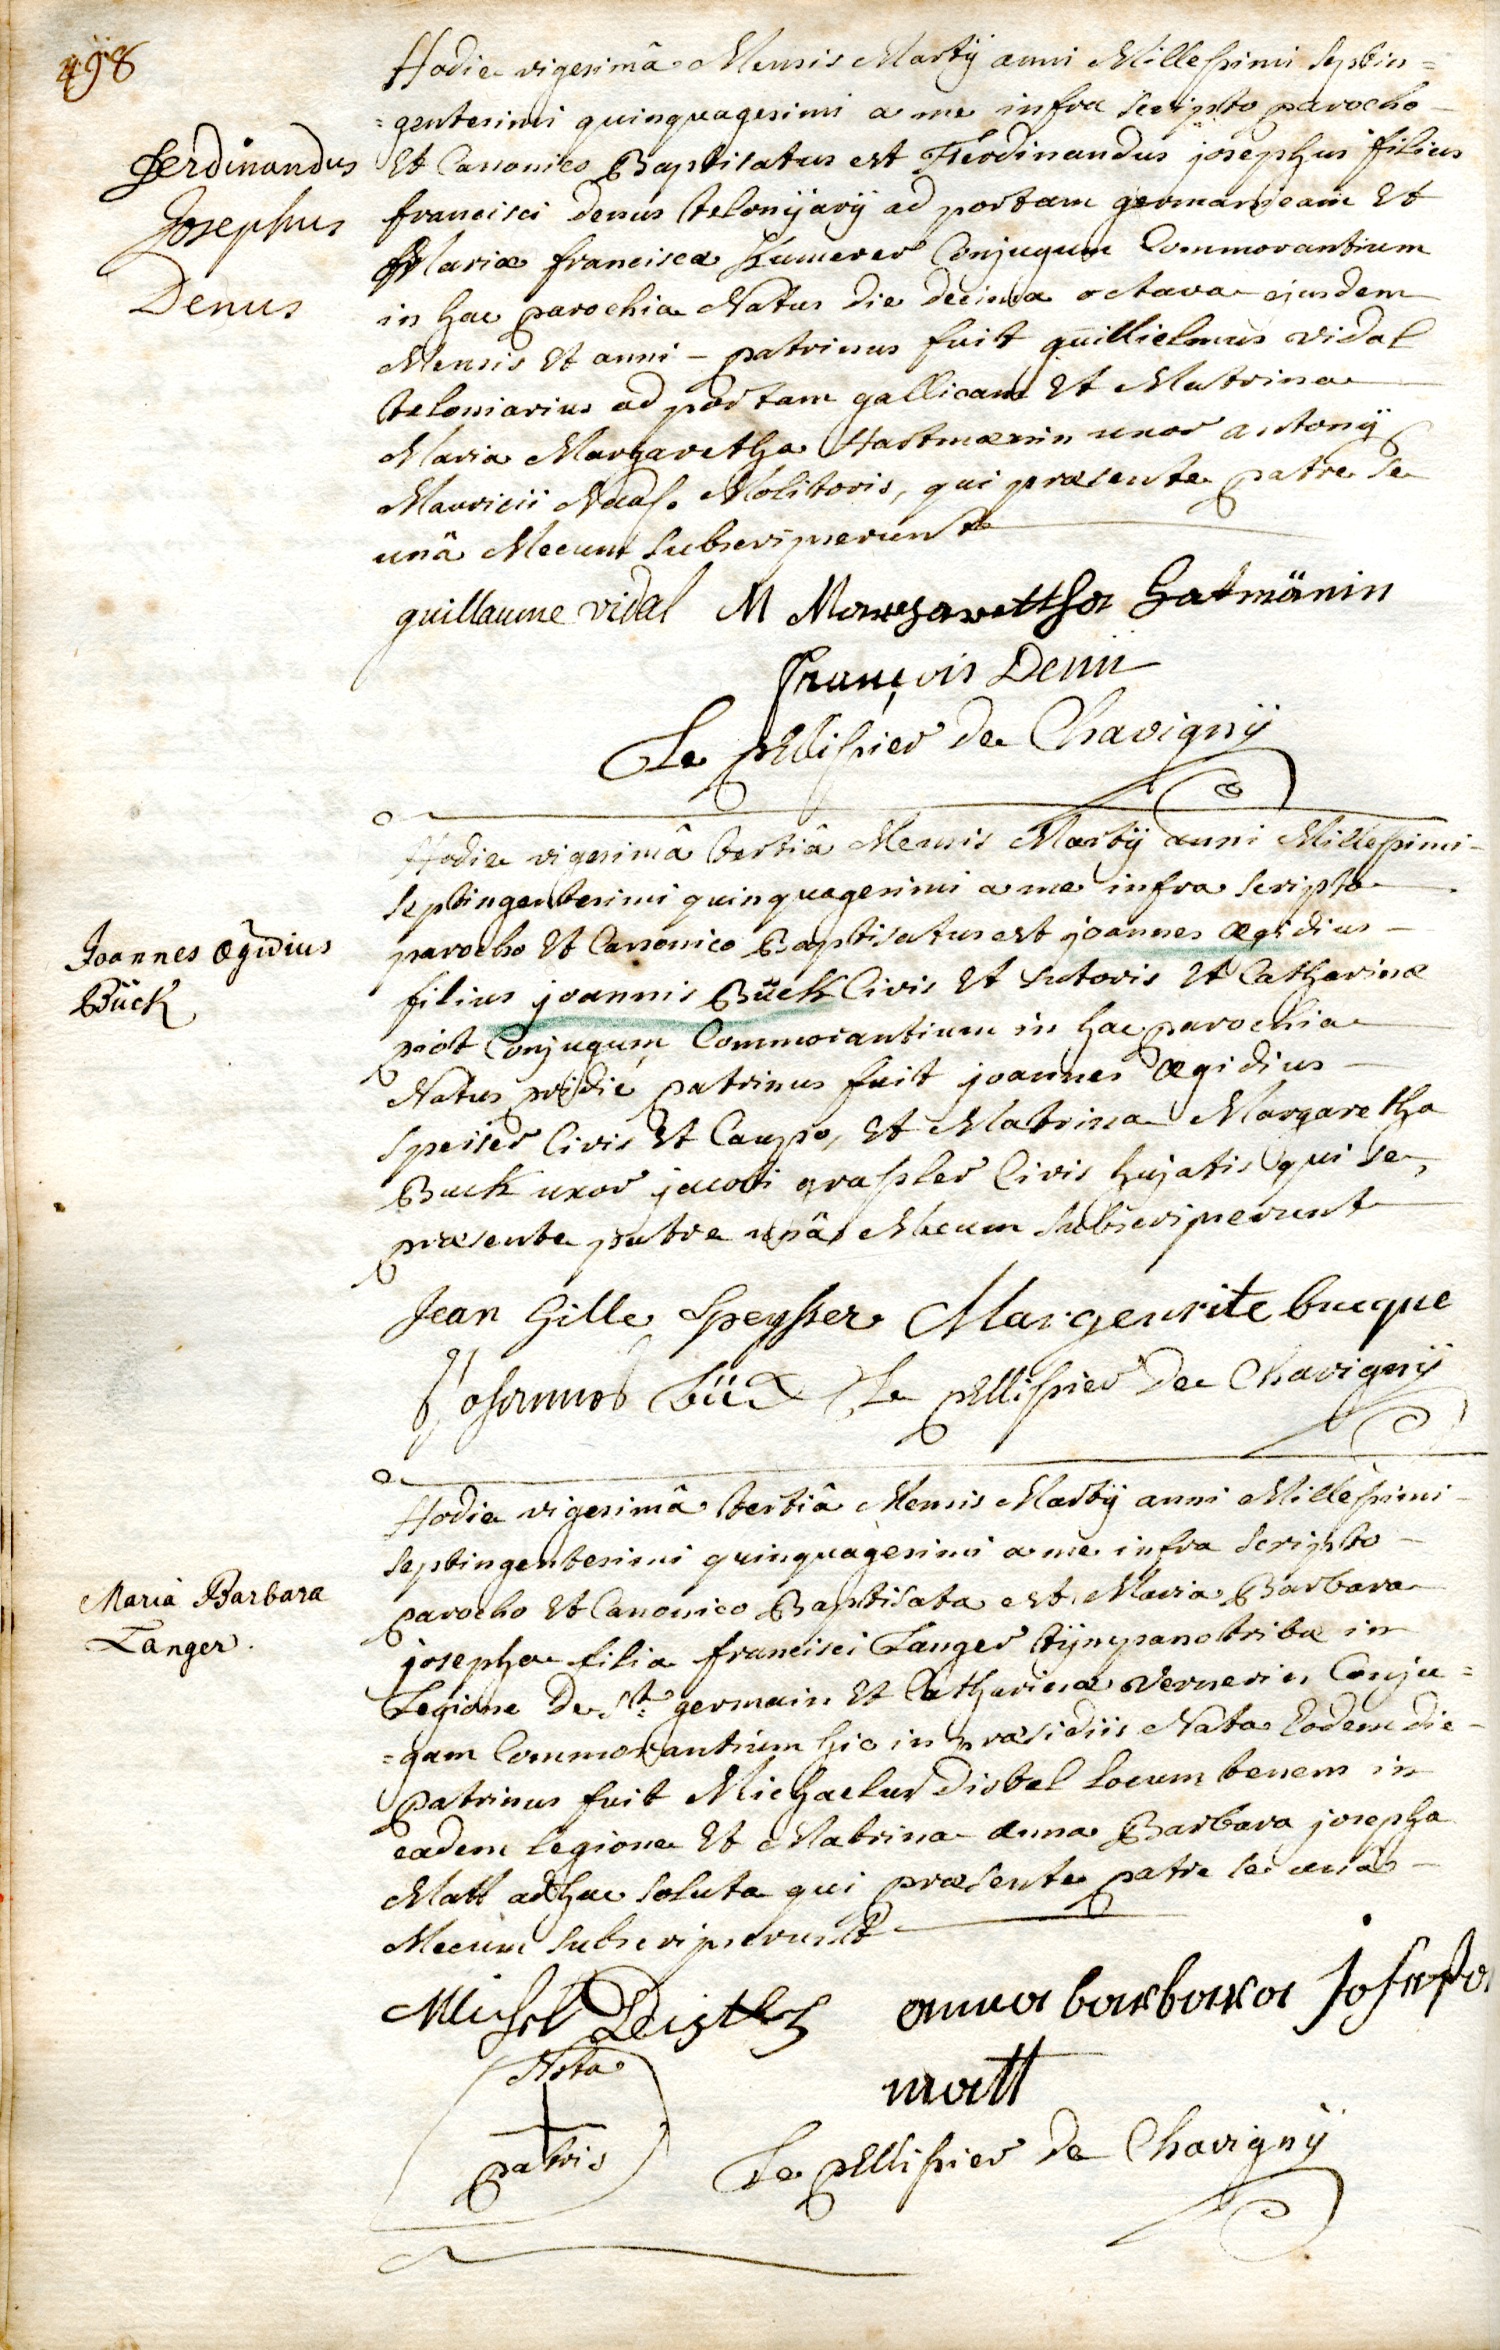 498
Hodie vigesimâ Mensis Martÿ anni Millesimi septin=
=gentesimi quinquagesimi a me infra scripto parocho
Et Canonico Baptisatus est Ferdinandus josephus filius
francisci denus telonÿarÿ ad portam germanicam Et
Mariæ franciscæ Kumerer Conjugum Commorantium
in hac parochia Natus die decima octava ejusdem
Mensis Et anni - patrinus fuit guillielmus vidal
teloniarius ad portam gallicam Et Matrina
Maria Margaretha Hartmænin uxor antonÿ
Mauricii Molitoris, qui præsente patre se
unâ Mecum subscripserunt
Ferdinandus
Josephus
Denus
guillaume vidal M Margarettha Hatmänin
François Denü
Le pellissier de Chavignÿ
Hodie vigesimâ tertiâ Mensis Martÿ anni Millesimi-
septingentesimi quinquagesimi a me infra scripto
parocho Et Canonico Baptisatus est joannes ægidius -
filius joannis Bück Civis Et sutoris Et Catharinæ
piot Conjugum Commorantium in hac parochia
Natus pridie patrinus fuit joannes ægidius -
speiser Civis Et Caupo, Et Matrina Margaretha
Buck uxor jacobi grassler Civis hujatis qui se,
præsente patre unâ Mecum subscripserunt
Joannes ægidius
Bück
Jean Gille Speysser Margeurite bucque
Johannes Bück Le pellissier de Chavignÿ
Hodie vigesimâ tertiâ Mensis Martÿ anni Millesimi-
septingentesimi quinquagesimi a me infra scripto -
parocho Et Canonico Baptisata est Maria Barbara
josepha filia francisci Langer tÿmpanotribæ in
Legione de St. germain Et Catharinæ vernerin Conju=
=gum Commorantium hic in præsidiis Nata Eodem die -
patrinus fuit Michaelus distel locum tenens in
eadem legione Et Matrina anna Barbara josepha
Matt adhuc soluta qui præsente patre se unâ -
Mecum subscripserunt
Maria Barbara
Langer.
Michel anna barbara Josepha
matt
Nota
patris
Le pellissier de Chavignÿ